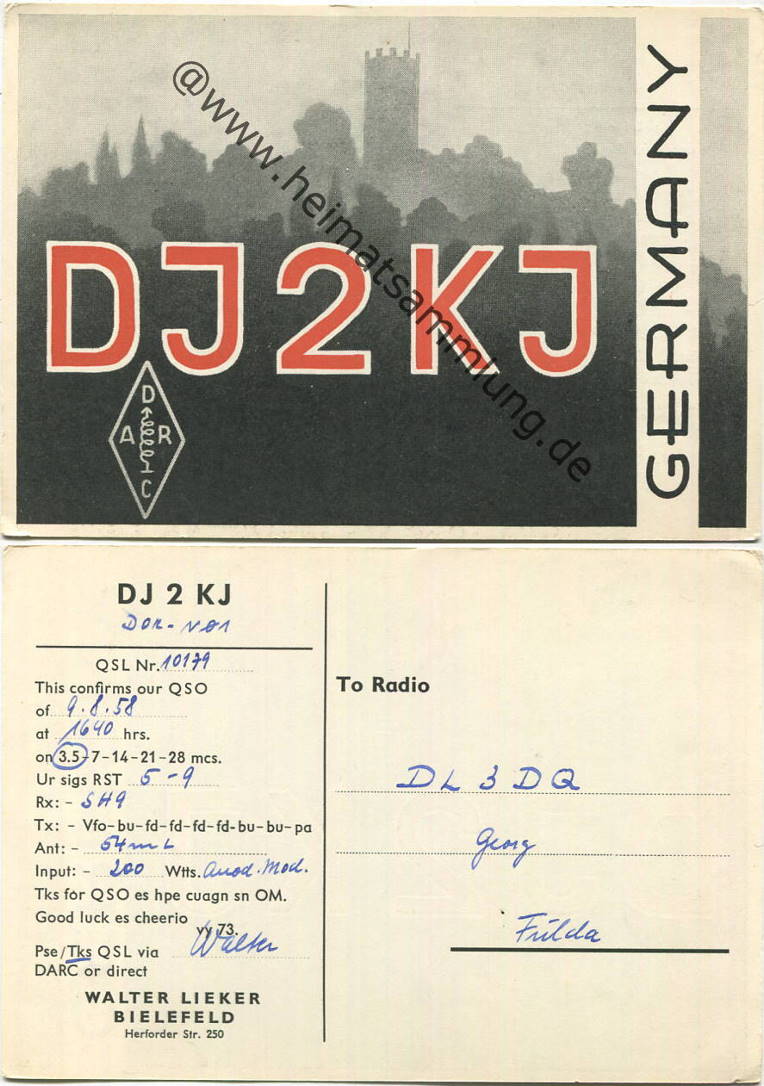 @www.heimatsammlung.de
DJ2KJ
GERMANY
D
A R
C
DJ 2 KJ
DOK-N01
QSL Nr. 10179
This confirms our QSO
of 9.8.58
at 1640 hrs.
on 3.5-7-14-21-28 mcs.
Ur sigs RST 5-9
Rx: - SH9
Tx: - Vfo-bu-fd-fd-fd-fd-bu-bu-pa
Ant: - 54m L
Input: - 200 Wtts. Anod. Mod.
Tks for QSO es hpe cuagn sn OM.
Good luck es cheerio
vy 73.
Pse/Tks QSL via Walter
DARC or direct
WALTER LIEKER
BIELEFELD
Herforder Str. 250
To Radio
DL 3 DQ
Georg
Fulda